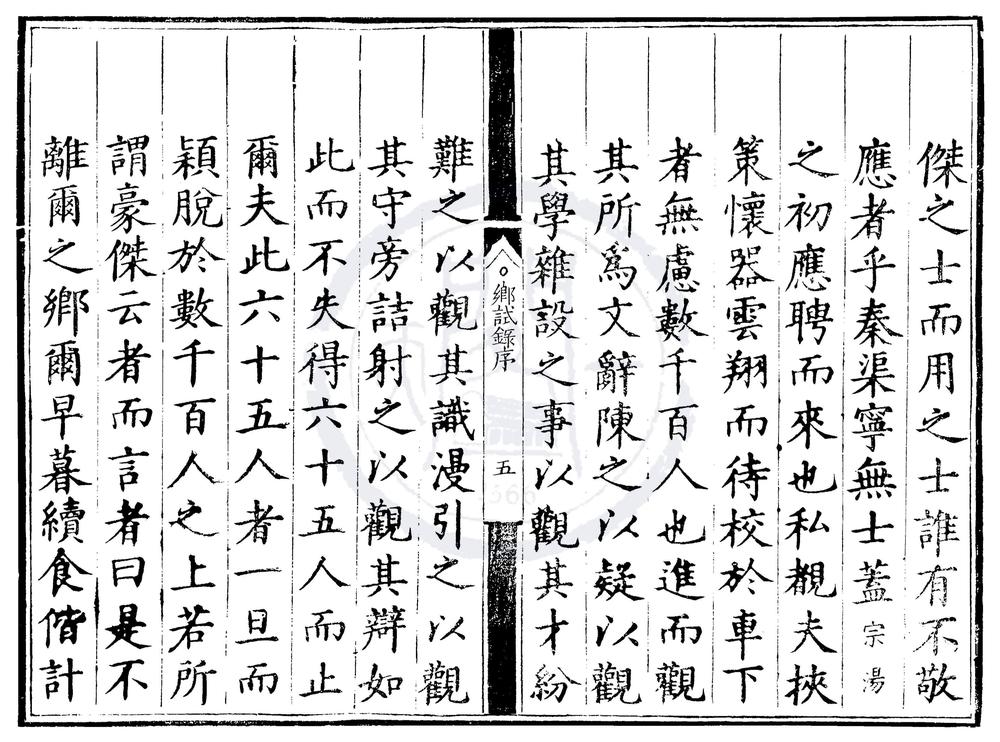 傑之士而用之士誰有不敬
應者乎秦渠寧無士蓋宗湯
之初應聘而來也私覩夫挾
策懷器雲翔而待校於車下
者無慮數千百人也進而觀
其所爲文辭陳之以疑以觀
其學雜設之事以觀其才紛
鄉試錄序
五
難之以觀其識漫引之以觀
其守旁詰射之以觀其辯如
此而不失得六十五人而止
爾夫此六十五人者一旦而
穎脫於數千百人之上若所
謂豪傑云者而言者曰是不
離爾之鄉爾早暮續食偕計